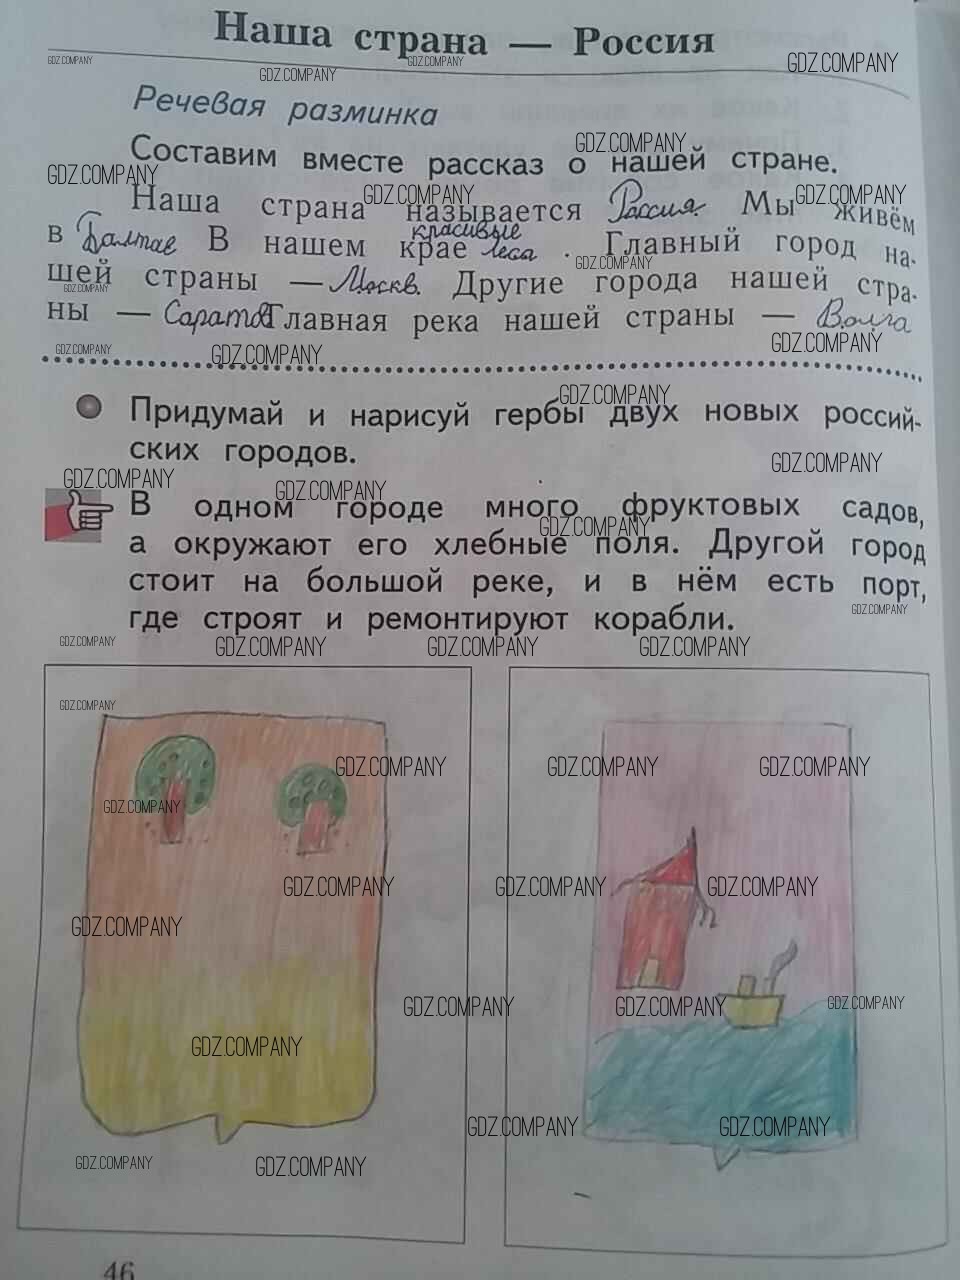 Наша страна — Россия
Речевая разминка
Составим вместе рассказ о нашей стране.
Наша страна называется Россия. Мы живём
в Балтае В нашем крае красивые леса . Главный город на-
шей страны — Москв. Другие города нашей стра-
ны — Саратов Главная река нашей страны — Волга
Придумай и нарисуй гербы двух новых россий-
ских городов.
В одном городе много фруктовых садов,
а окружают его хлебные поля. Другой город
стоит на большой реке, и в нём есть порт,
где строят и ремонтируют корабли.
46
GDZ.COMPANY